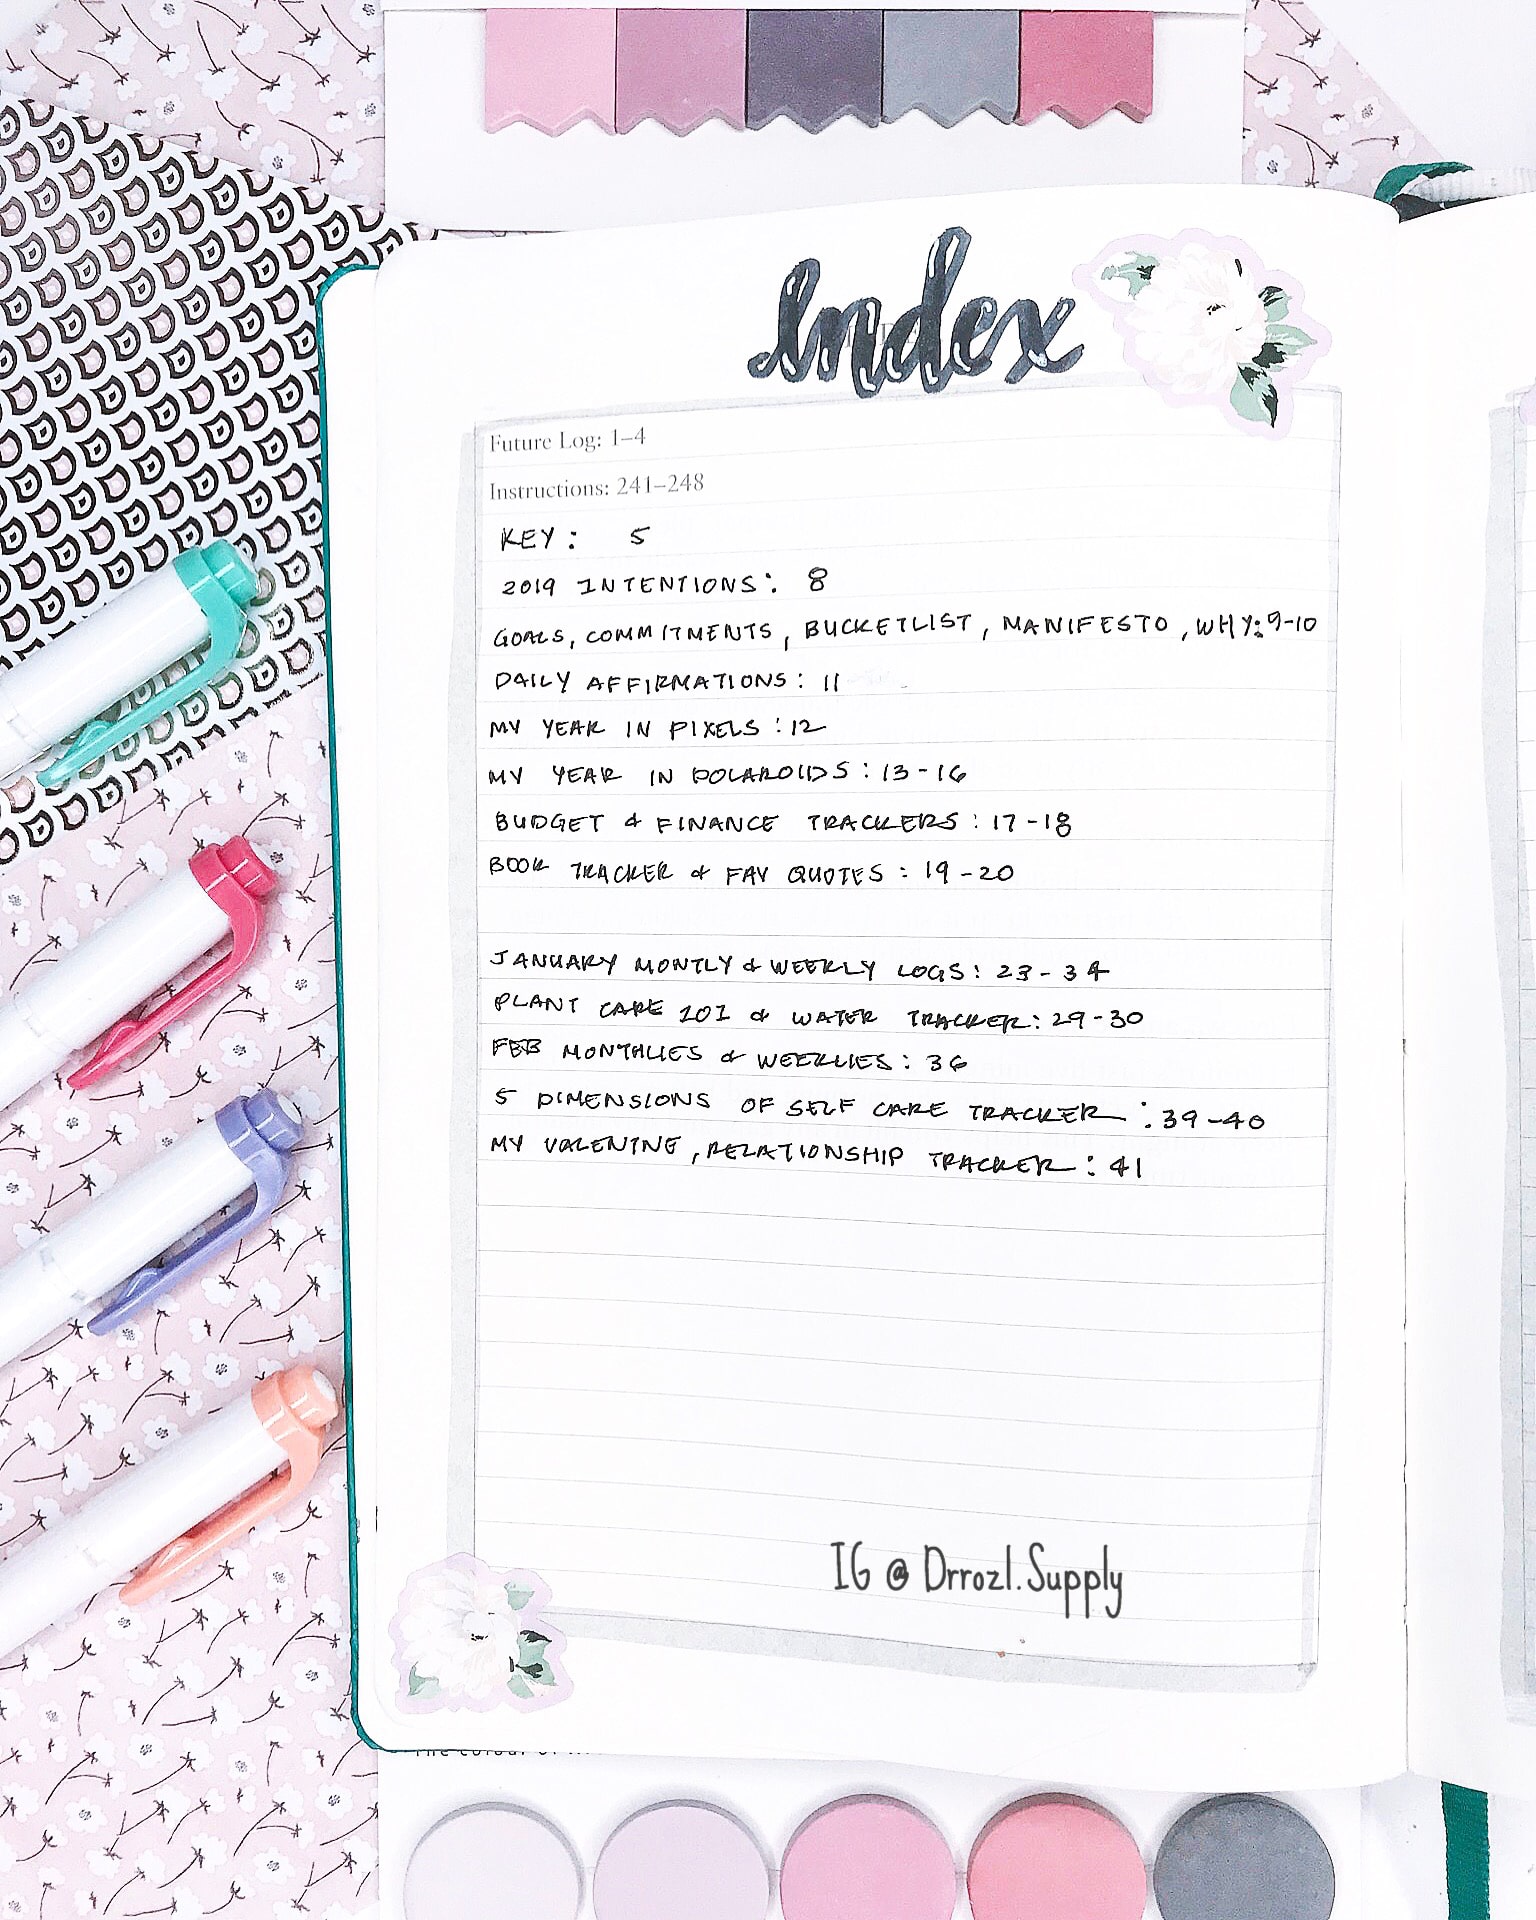 Index
Future Log: 1–4
Instructions: 241–248
KEY: 5
2019 INTENTIONS: 8
GOALS, COMMITMENTS, BUCKETLIST, MANIFESTO, WHY: 9-10
DAILY AFFIRMATIONS: 11
MY YEAR IN PIXELS: 12
MY YEAR IN POLAROIDS: 13-16
BUDGET & FINANCE TRACKERS: 17-18
BOOK TRACKER & FAV QUOTES: 19-20
JANUARY MONTLY & WEEKLY LOGS: 23-34
PLANT CARE 101 & WATER TRACKER: 29-30
FEB MONTHLIES & WEEKLIES: 36
5 DIMENSIONS OF SELF CARE TRACKER: 39-40
MY VALENTINE, RELATIONSHIP TRACKER: 41
IG @ Drrozl.Supply